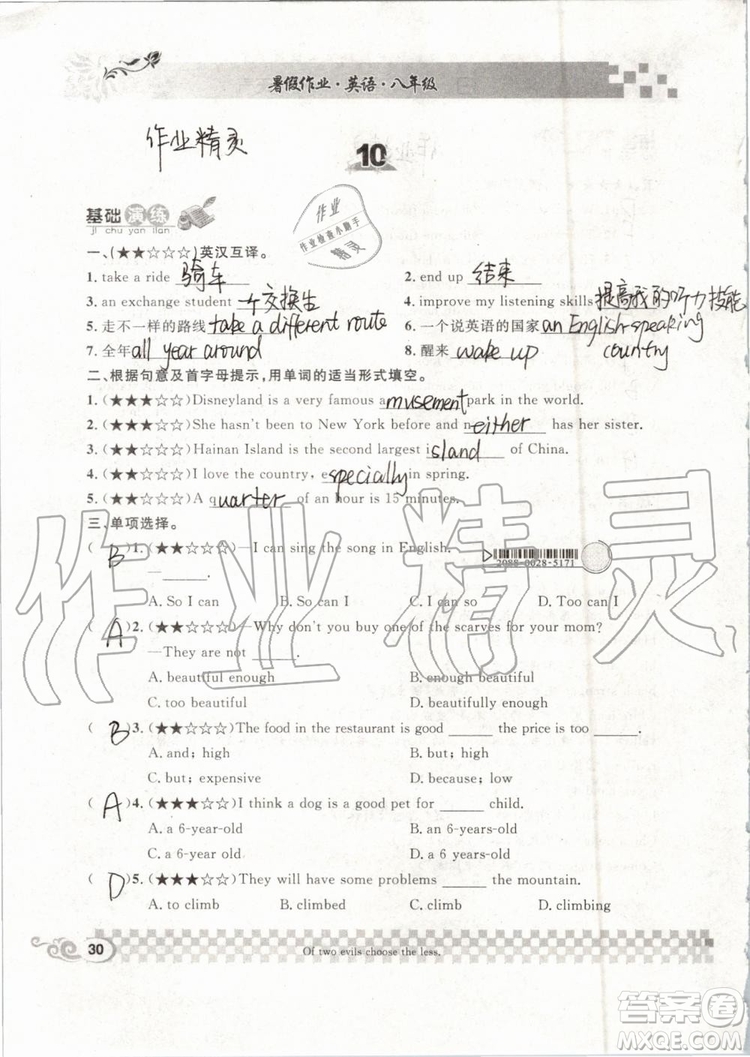 暑假作业·英语·八年级
作业精灵
10
基础演练
ji chu yan lian
作业
作业检查小助手
精灵
一、(★★☆☆☆)英汉互译。
1. take a ride 骑车 2. end up 结束
3. an exchange student 一个交换生 4. improve my listening skills 提高我的听力技能
5. 走不一样的路线 take a different route 6. 一个说英语的国家 an English-speaking country
7. 全年 all year around 8. 醒来 wake up
二、根据句意及首字母提示,用单词的适当形式填空。
1. (★★★☆☆)Disneyland is a very famous amusement park in the world.
2. (★★★☆☆)She hasn't been to New York before and neither has her sister.
3. (★★★☆☆)Hainan Island is the second largest island of China.
4. (★★★☆☆)I love the country, especially in spring.
5. (★★★☆☆)A quarter of an hour is 15 minutes.
三、单项选择。
( B )1. (★★☆☆☆)—I can sing the song in English.
—____.
A. So I can B. So can I C. I can so D. Too can I
2088-0028-5171
( A )2. (★★☆☆☆)—Why don't you buy one of the scarves for your mom?
—They are not ____.
A. beautiful enough B. enough beautiful
C. too beautiful D. beautifully enough
( B )3. (★★☆☆☆)The food in the restaurant is good ____ the price is too ____.
A. and; high B. but; high
C. but; expensive D. because; low
( A )4. (★★★☆☆)I think a dog is a good pet for ____ child.
A. a 6-year-old B. an 6-years-old
C. a 6-years-old D. a 6 year old
( D )5. (★★★☆☆)They will have some problems ____ the mountain.
A. to climb B. climbed C. climb D. climbing
30
Of two evils choose the less.
作业精灵
答案圈
MXQE.COM